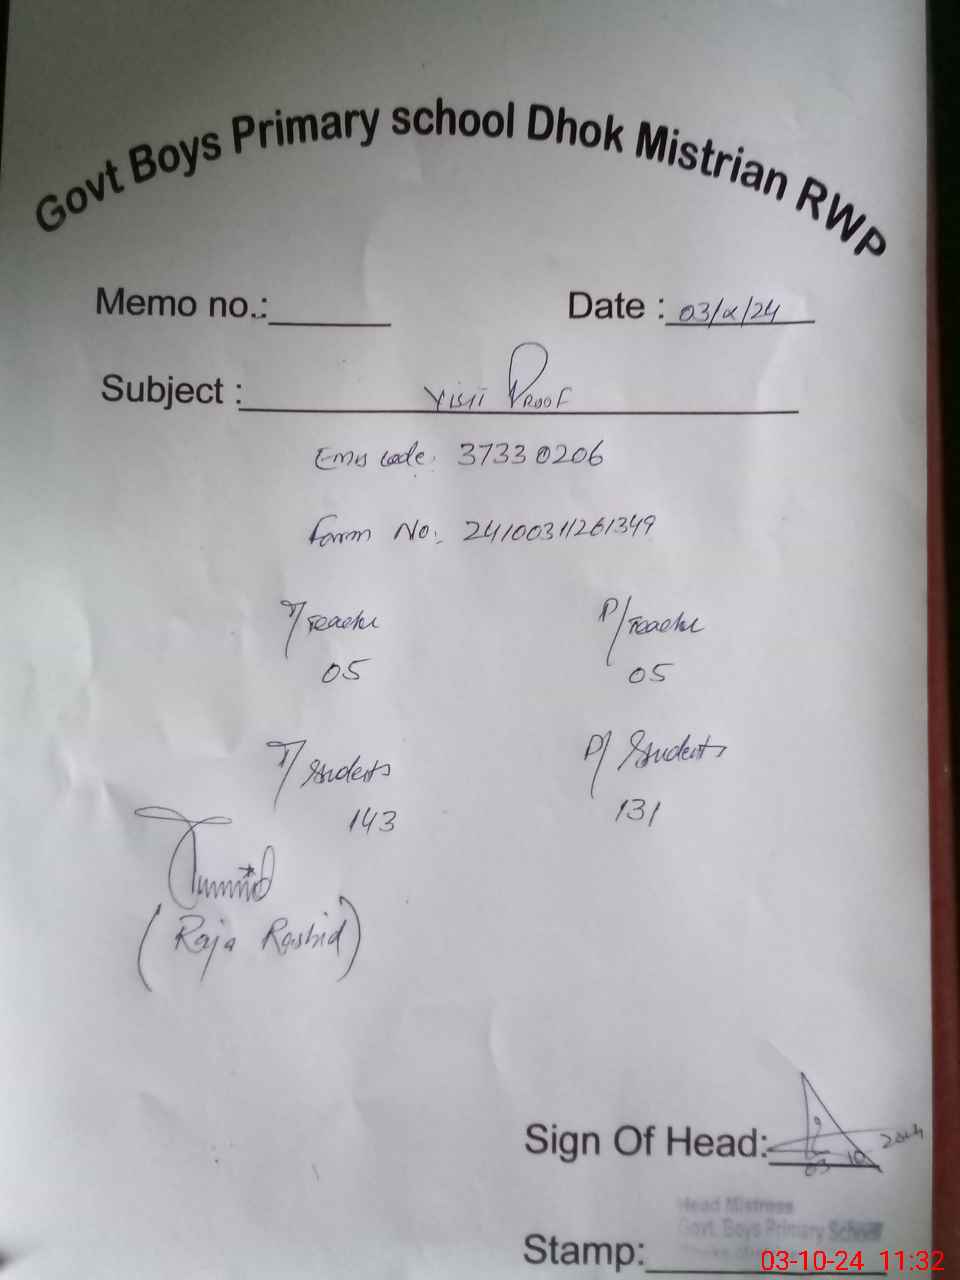 Govt Boys Primary school Dhok Mistrian RWP
Memo no.:
Date : 03/x/24
Subject : Visit Proof
Emis code: 37330206
Form No: 24100311261349
T/Teacher P/Teacher
05 05
T/Students P/Students
143 131
(Raja Rashid)
Sign Of Head: 03 10 2024
Head Mistress
Govt. Boys Primary School
Stamp:
03-10-24 11:32